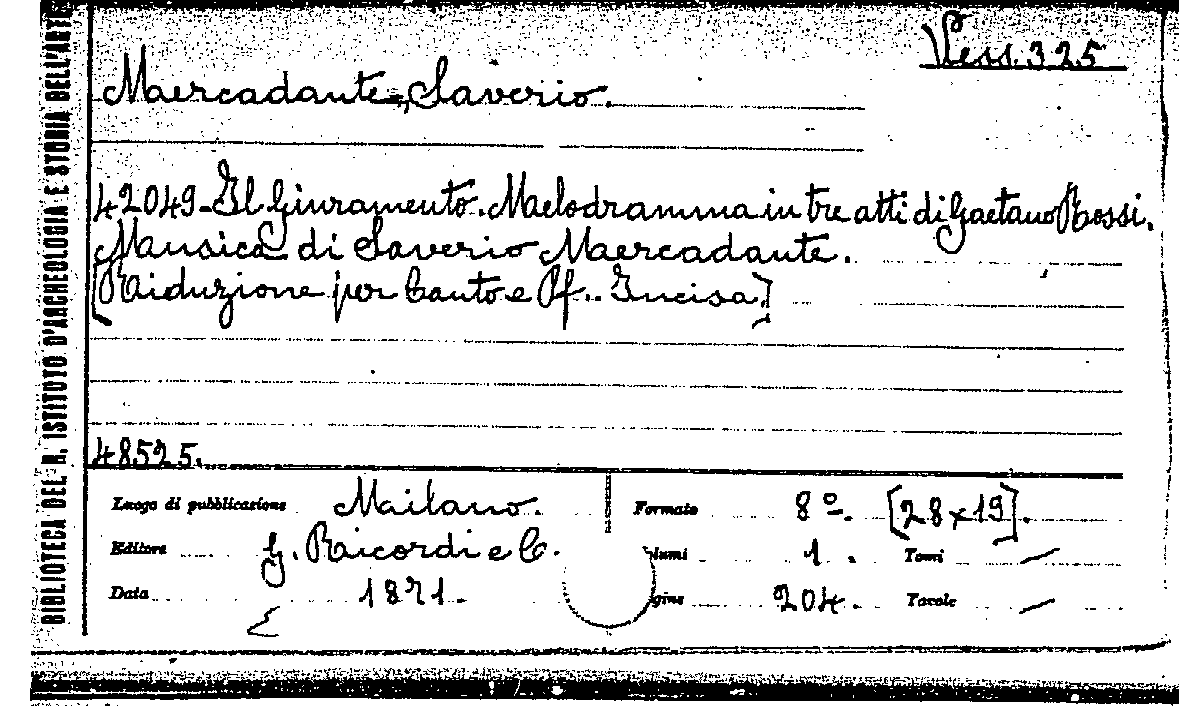 Vess. 325
Mercadante, Saverio.
42049 - Il Giuramento. Melodramma in tre atti di Gaetano Rossi.
Musica di Saverio Mercadante.
[Riduzione per Canto e Pf.. Incisa]
48525.
Luogo di pubblicazione Milano. Formato 8º. [28x19].
Editore G. Ricordi e C. lumi 1. Tomi —
Data 1871. gine 204. Tavole —
BIBLIOTECA DEL R. ISTITUTO D'ARCHEOLOGIA E STORIA DELL'ARTE